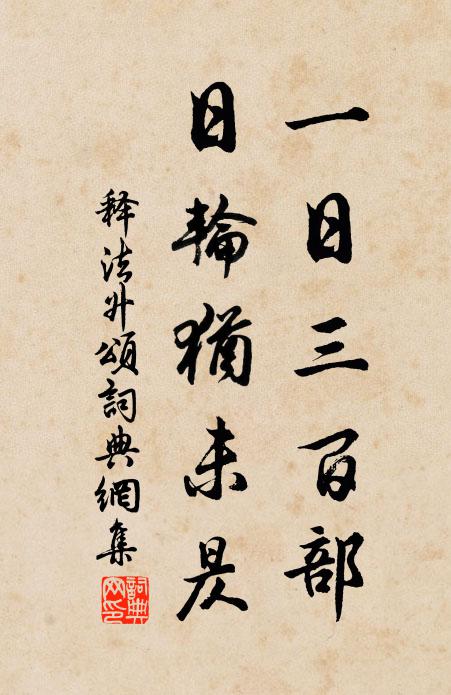 一日三百部
日輪猶未昃
释法外頌詞典網集
詞典網印